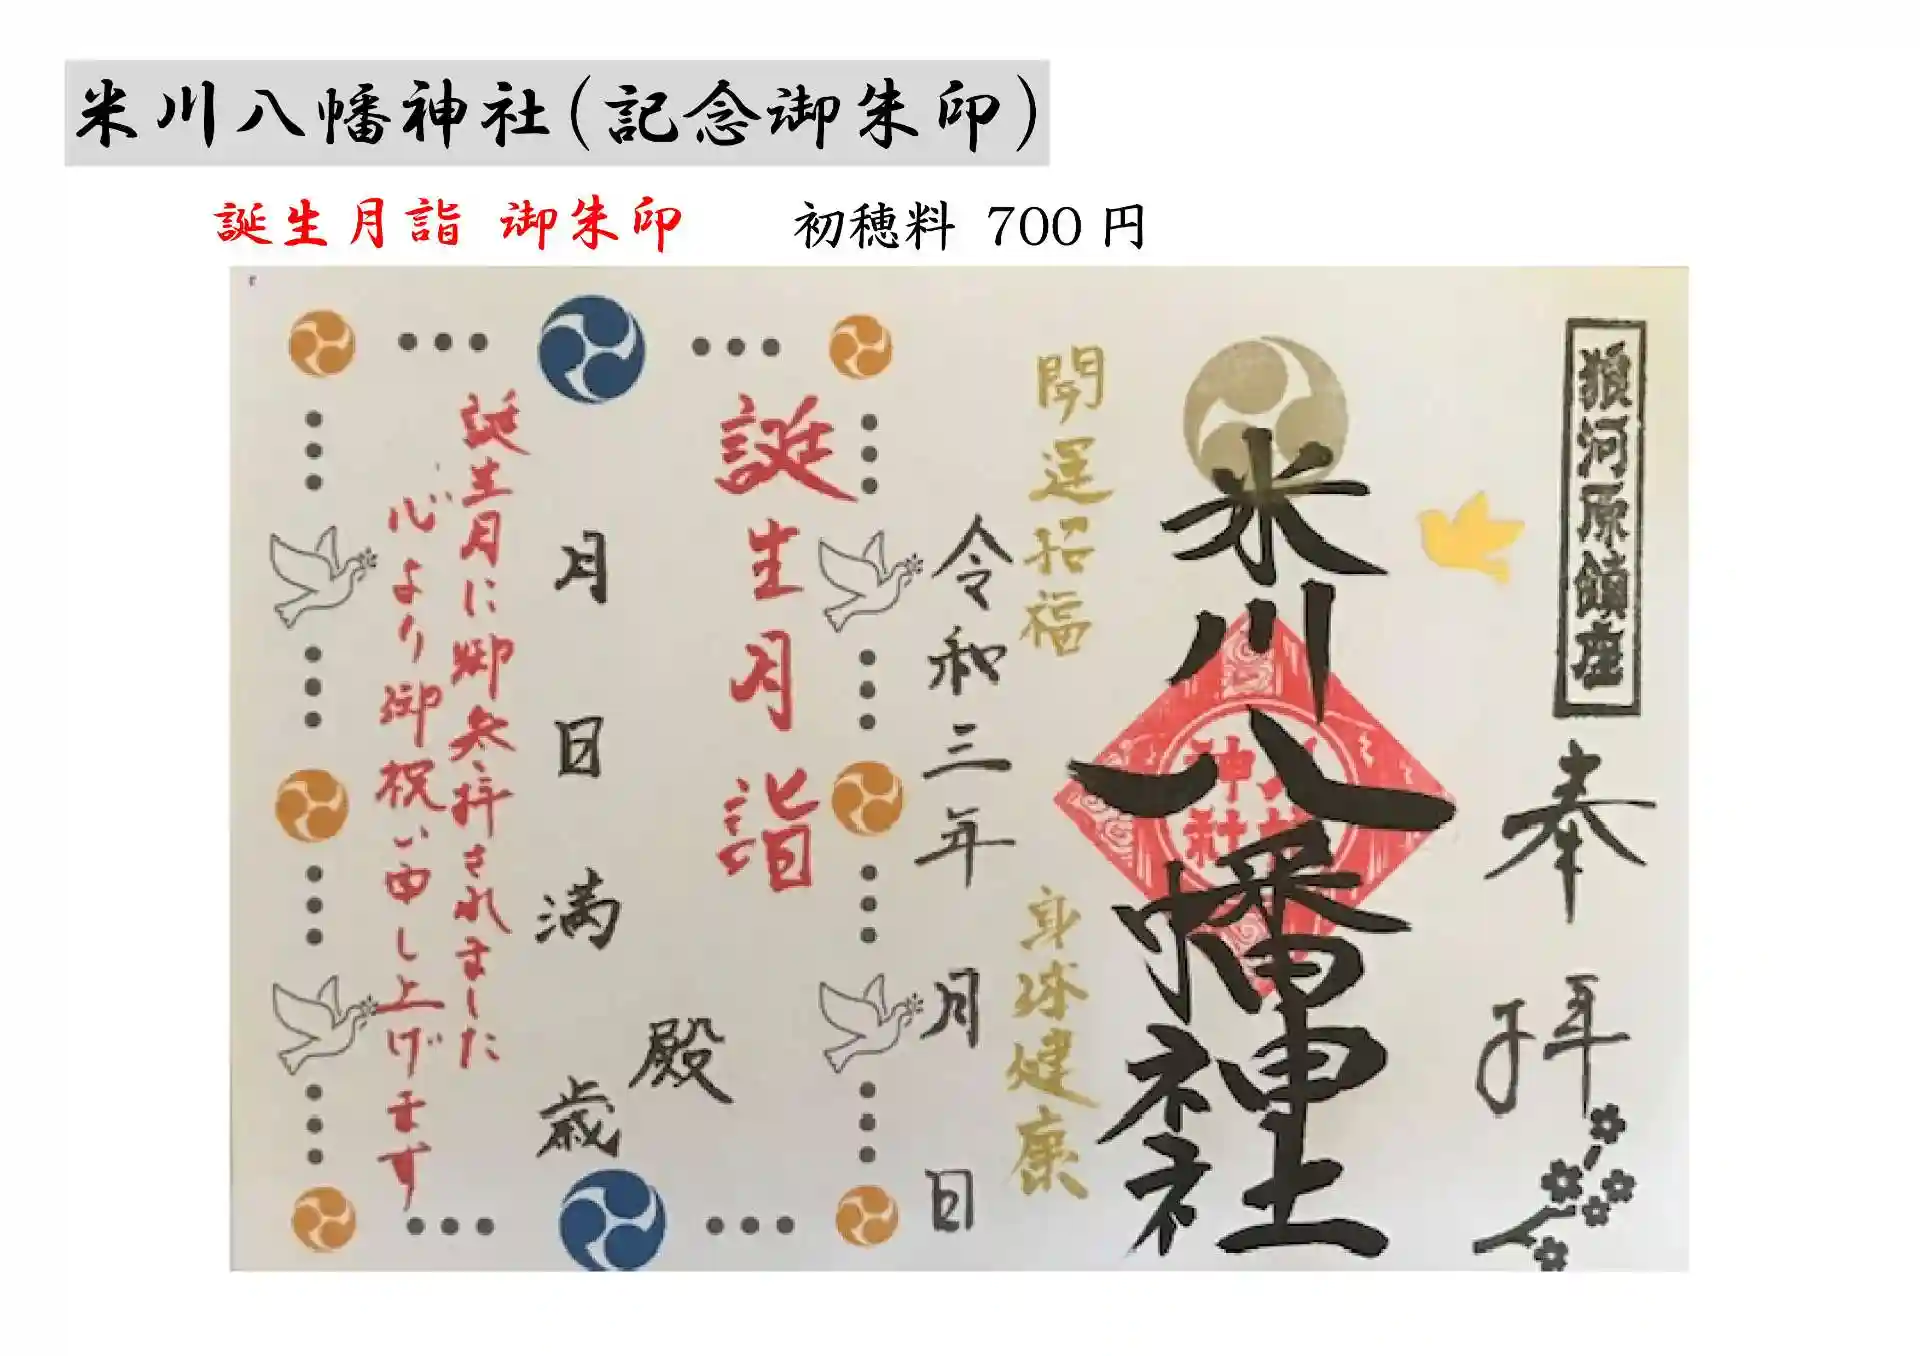 米川八幡神社(記念御朱印)
誕生月詣 御朱印　初穂料 700 円
狼河原鎮座
奉拝
米川八幡神社
開運招福
身体健康
令和三年 月 日
誕生月詣
殿
月 日 満 歳
誕生月に御参拝されました
心より御祝い申し上げます